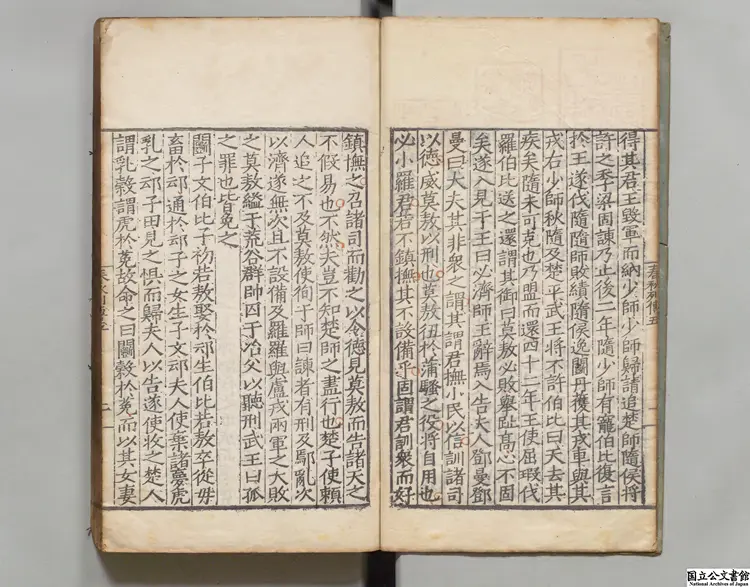 得其君王毀軍而納少師少師歸請追楚師隨侯將
許之季梁固諫乃止後二年隨少師有寵伯比復言
於王遂伐隨隨師敗績隨侯逸鬭丹獲其戎車與其
戎右少師秋隨及楚平武王將不許伯比曰天去其
疾矣隨未可克也乃盟而還四十二年王使屈瑕伐
羅伯比送之還謂其御曰莫敖必敗舉趾高心不固
矣遂入見于王曰必濟師王辭焉入告夫人鄧曼鄧
曼曰大夫其非衆之謂其謂君撫小民以信訓諸司
以德威莫敖以刑也莫敖狃於蒲騷之役將自用也
必小羅君若不鎮撫其不設備乎固謂君訓衆而好
春秋列傳五
鎮撫之召諸司而勸之以令德見莫敖而告諸天之
不假易也不然夫豈不知楚師之盡行也楚子使賴
人追之不及莫敖使徇于師曰諫者有刑及鄢亂次
以濟遂無次且不設備及羅羅與盧戎兩軍之大敗
之莫敖縊于荒谷群帥囚于冶父以聽刑武王曰孤
之罪也皆免之
鬭子文伯比子初若敖娶於䢵生伯比若敖卒從母
畜於䢵通於䢵子之女生子文䢵夫人使棄諸夢虎
乳之䢵子田見之懼而歸夫人以告遂使收之楚人
謂乳穀謂虎於菟故命之曰鬭穀於菟而以其女妻
国立公文書館
National Archives of Japan